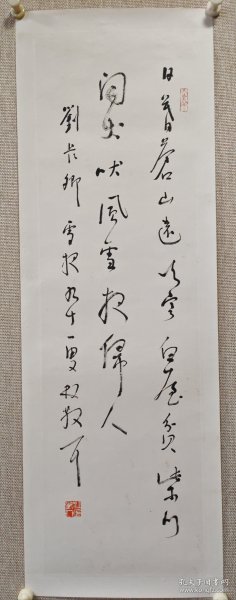 日暮苍山远天寒白屋贫柴门
闻犬吠风雪夜归人
刘长卿雪夜九十一叟林散耳
孔夫子旧书网